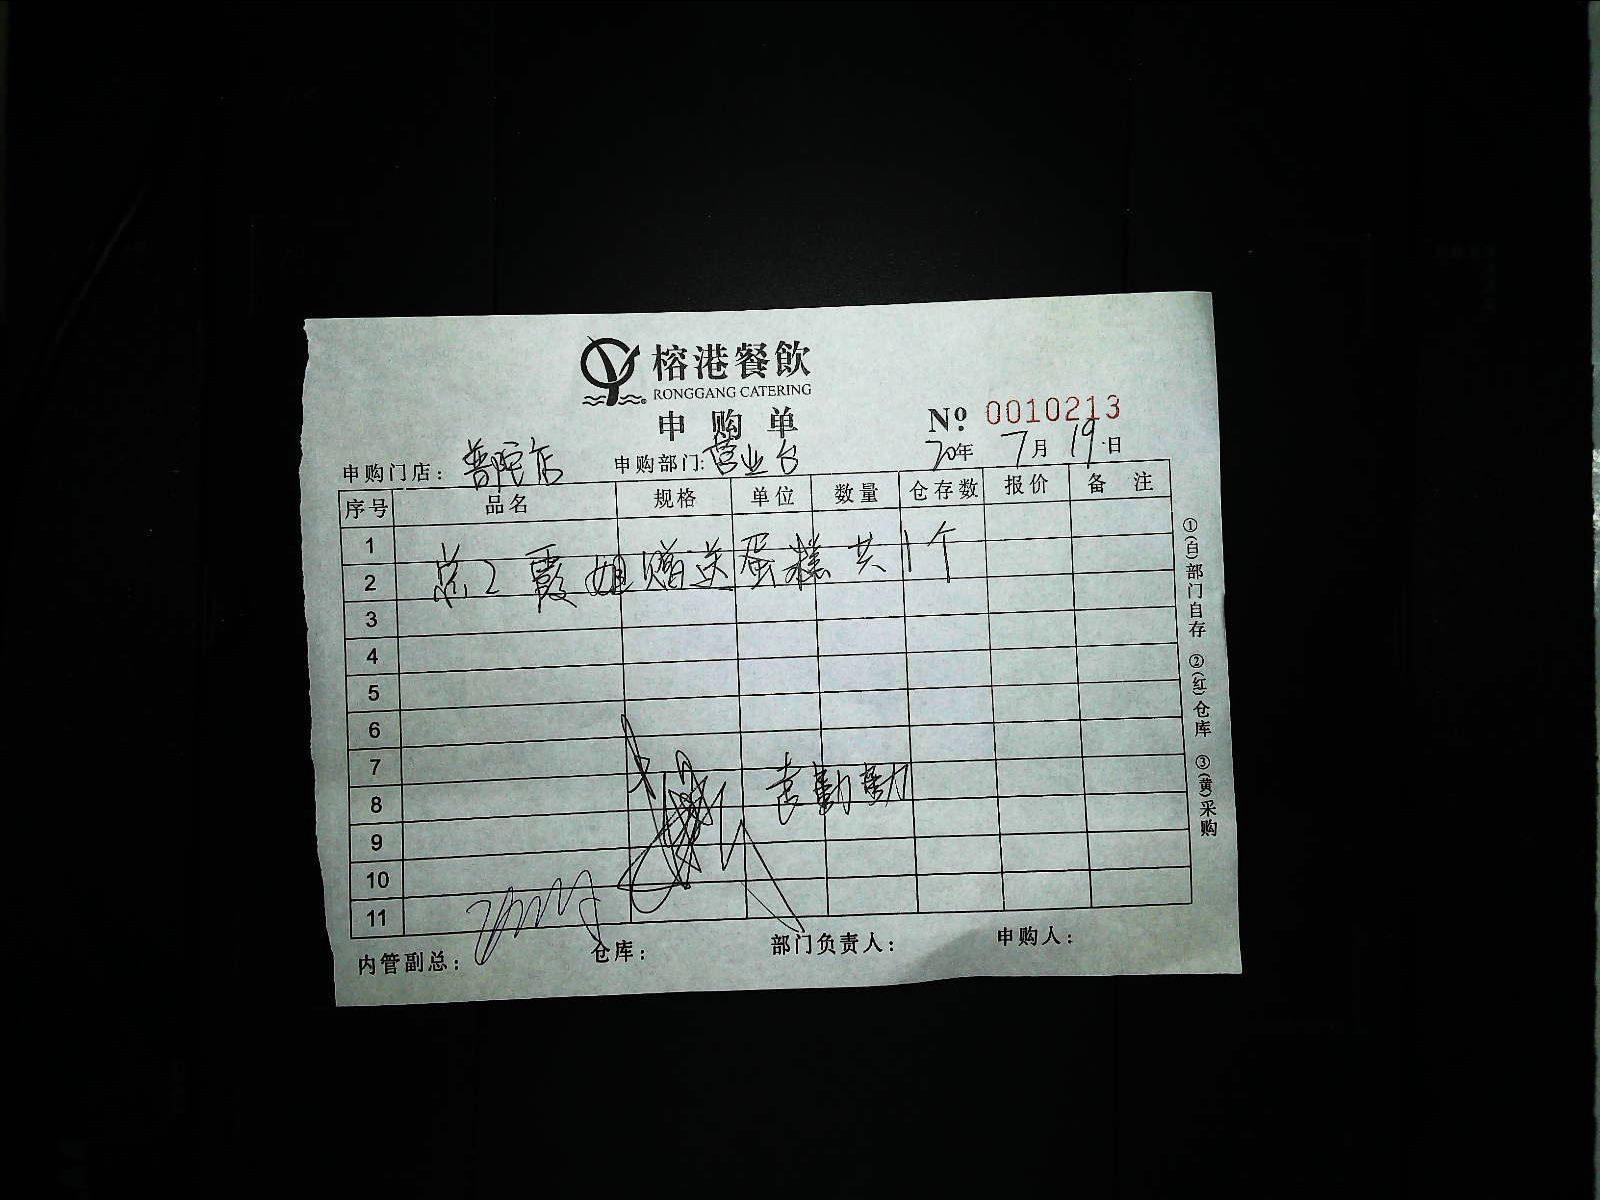 榕港餐飲
RONGGANG CATERING
申购单
№: 0010213
申购门店: 普陀店 申购部门: 营业台 20年 7月 19日
序号 品名 规格 单位 数量 仓存数 报价 备注
1
2 总2霞姐赠送蛋糕共1个
3
4
5
6
7
8 袁勤勤
9
10
11
内管副总: 仓库: 部门负责人: 申购人:
①(白)部门自存 ②(红)仓库 ③(黄)采购